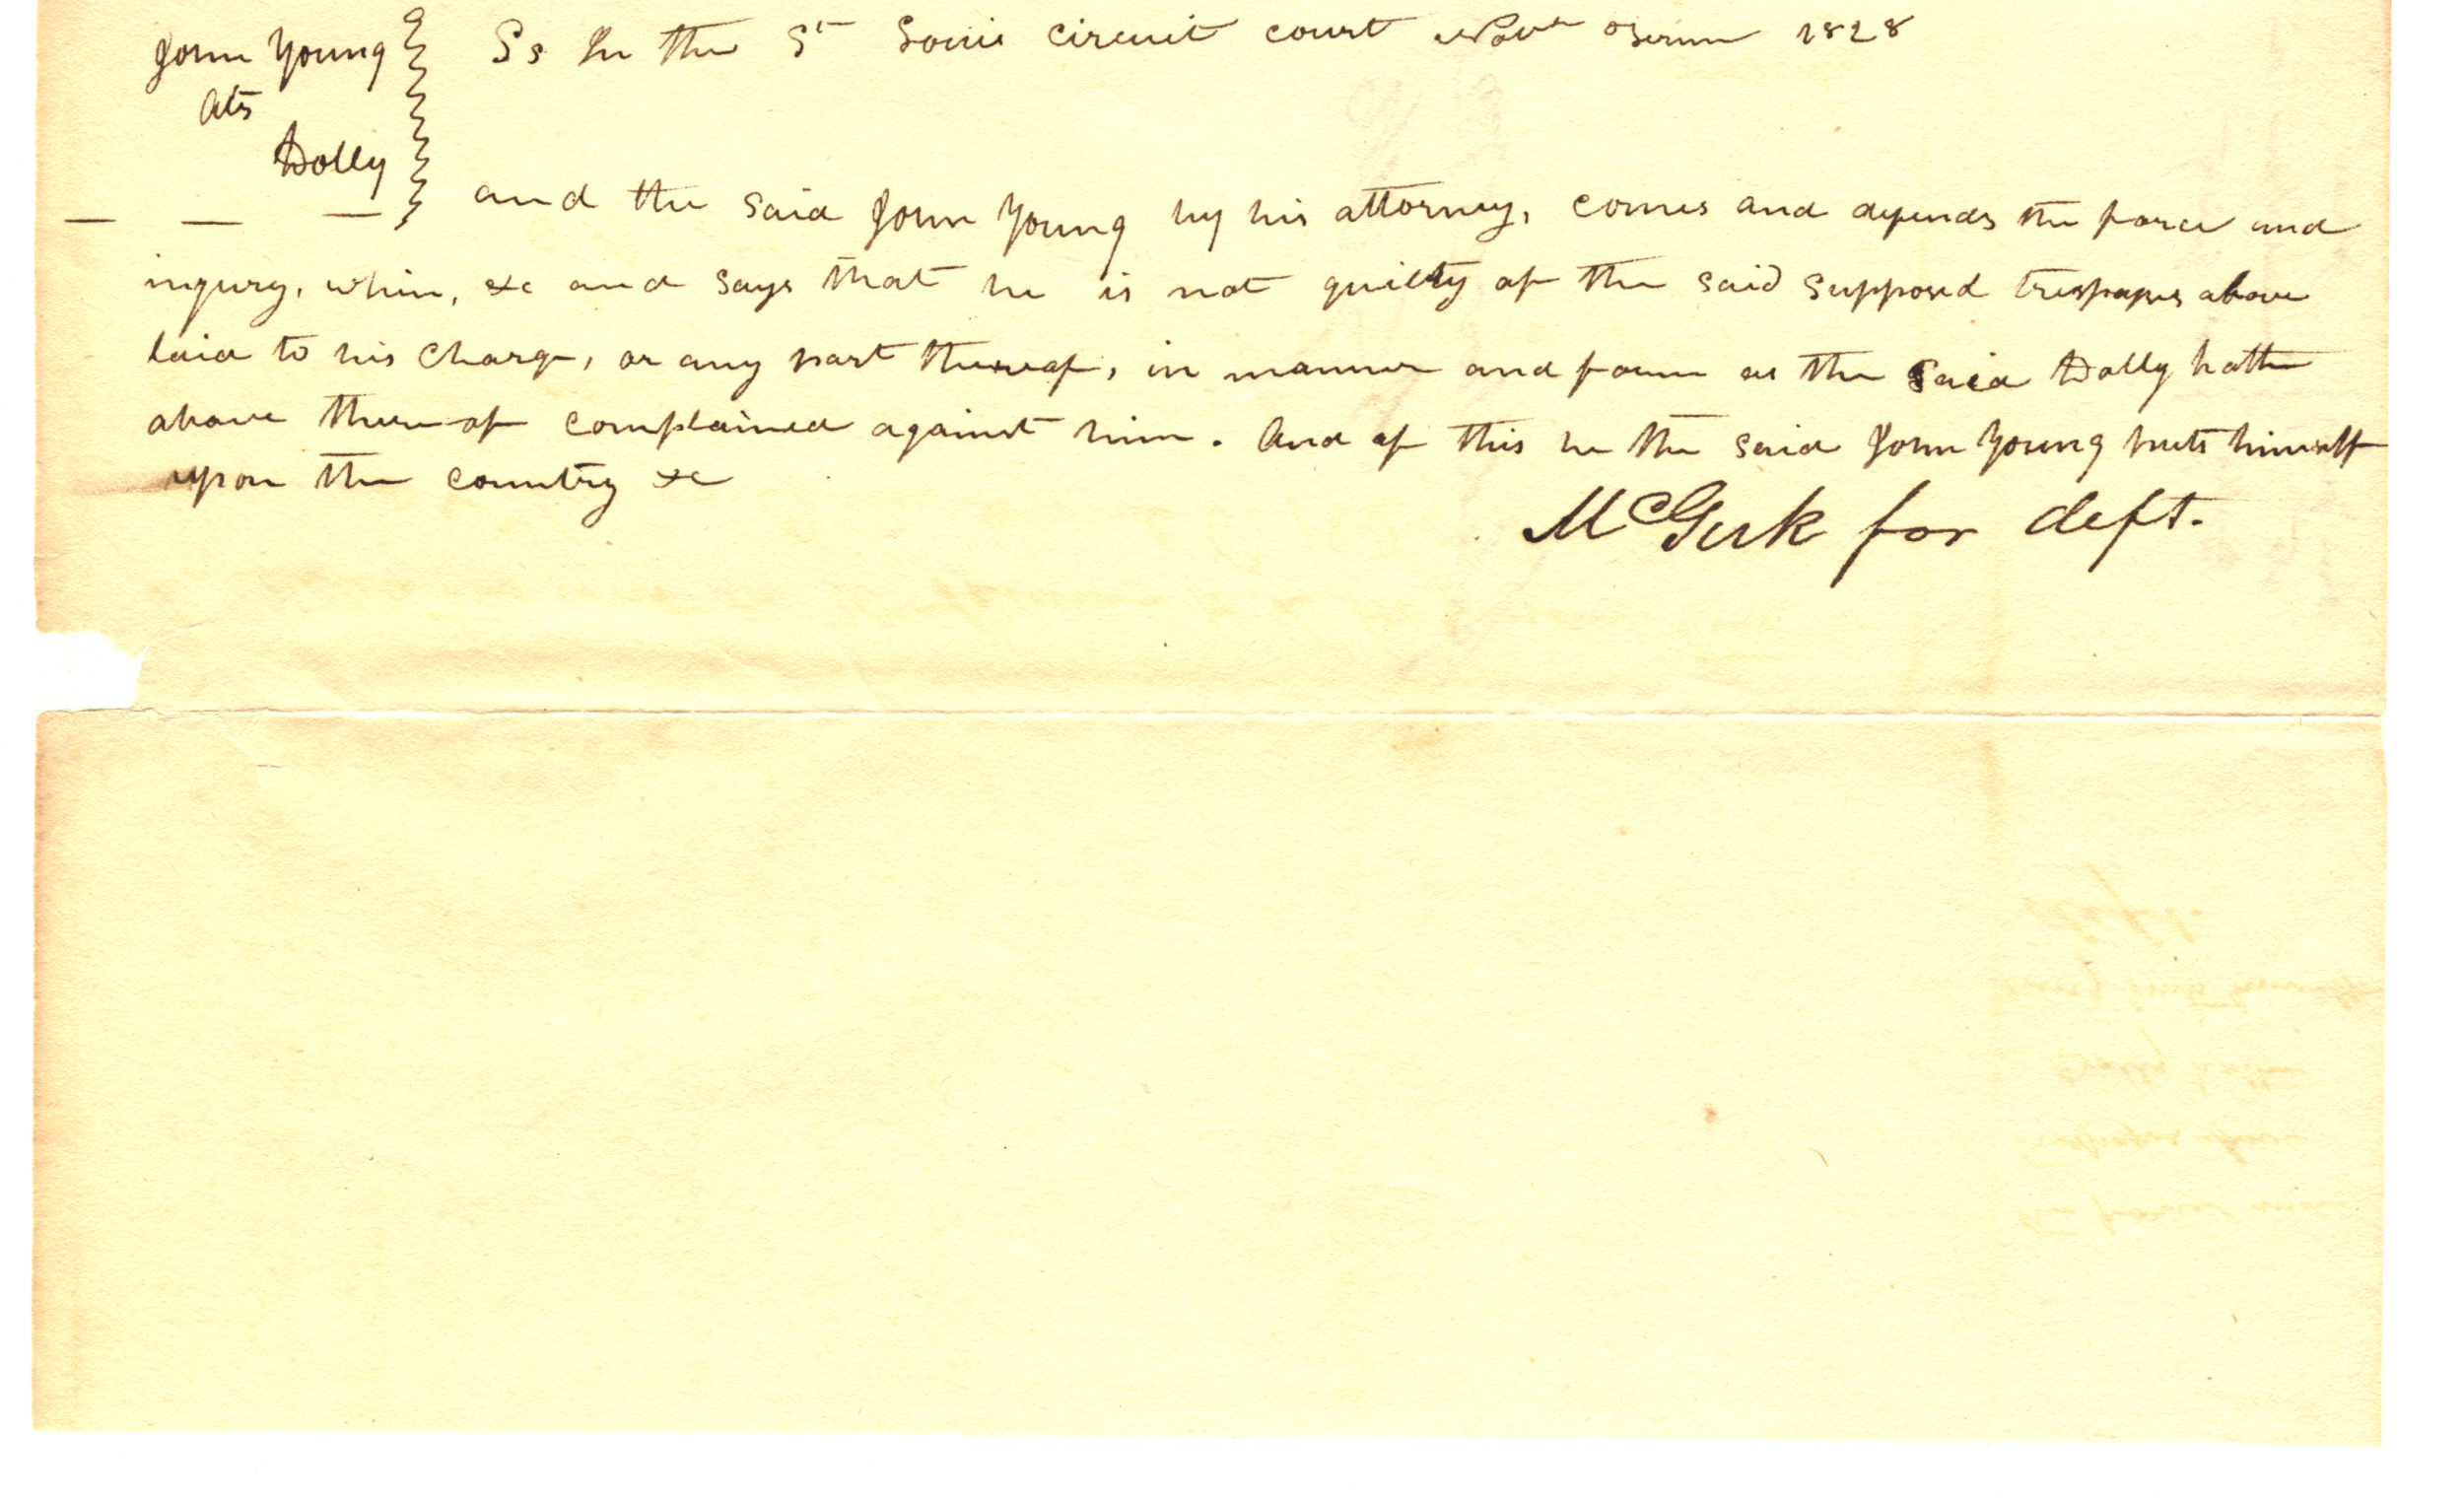 John Young } Ss In the St Louis circuit court Novr Term 1828
ats
Dolly
and the said John Young by his attorney, comes and defends the force and
injury, when, &c and says that he is not guilty of the said supposed trespasses above
laid to his charge, or any part thereof, in manner and form as the said Dolly hath
above thereof complained against him. And of this he the said John Young puts himself
upon the country &c
McGirk for deft.